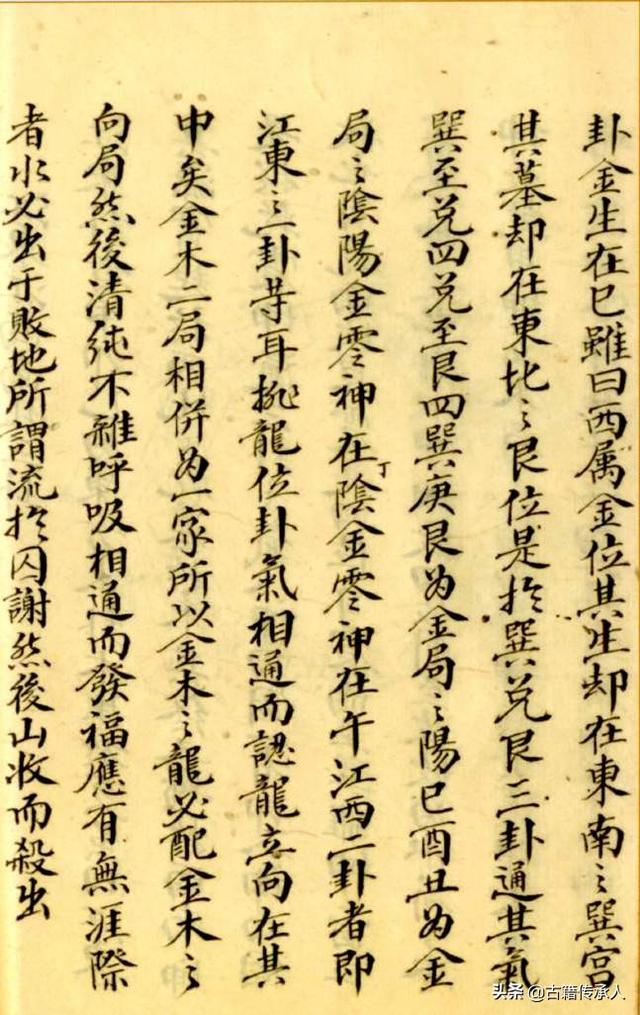 卦金生在巳雖曰西属金位其生却在東南之巽宫
其墓却在東北之艮位是扵巽兑艮三卦通其氣
巽至兑四兑至艮四巽庚艮为金局之陽巳酉丑为金
局之陰陽金零神在丁陰金零神在午江西二卦者即
江東之一卦䓁耳挨龍位卦氣相通而認龍立向在其
中矣金木二局相併为一家所以金木之龍必配金木之
向局然後清純不雜呼吸相通而發福應有無涯際
者水必出于敗地所謂流扵囚謝然後山收而殺出
头条 @古籍传承人